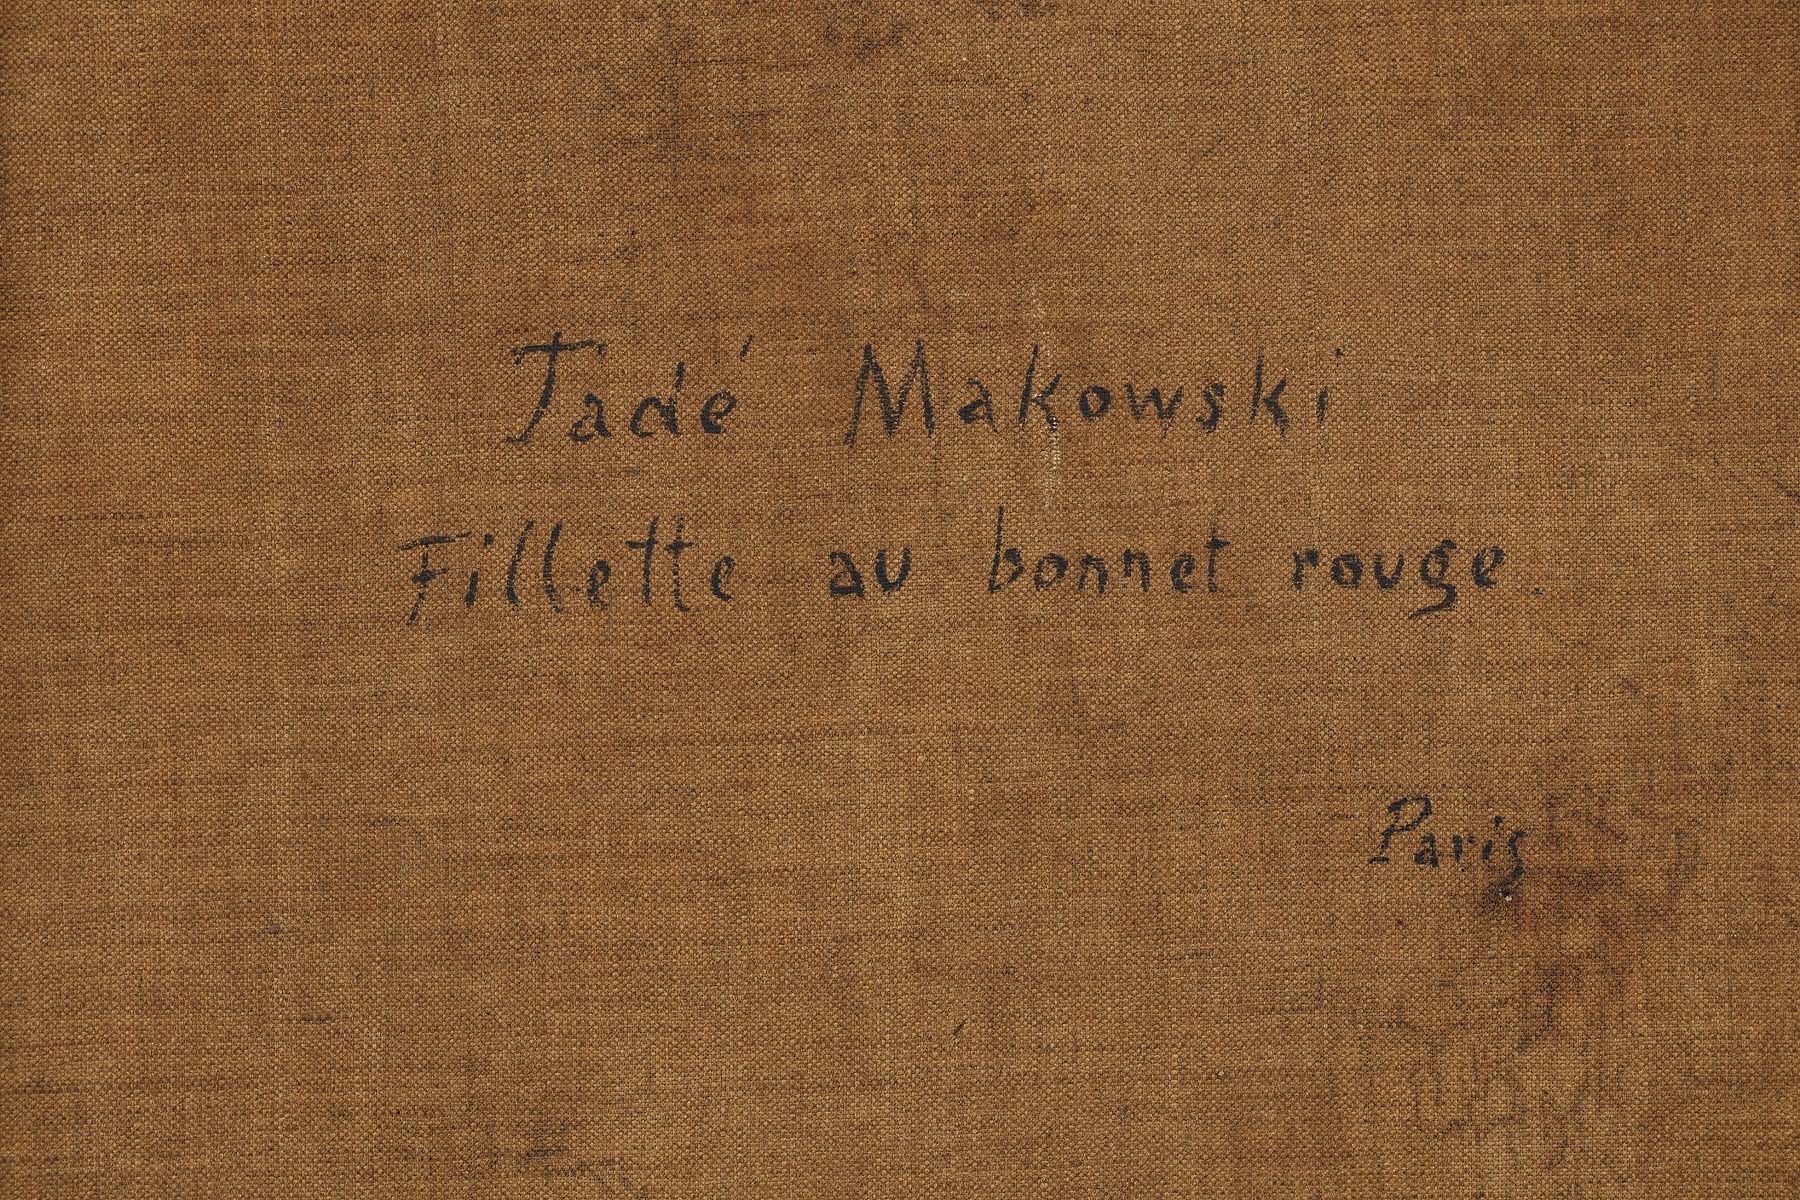 Tadé Makowski
Fillette au bonnet rouge.
Paris